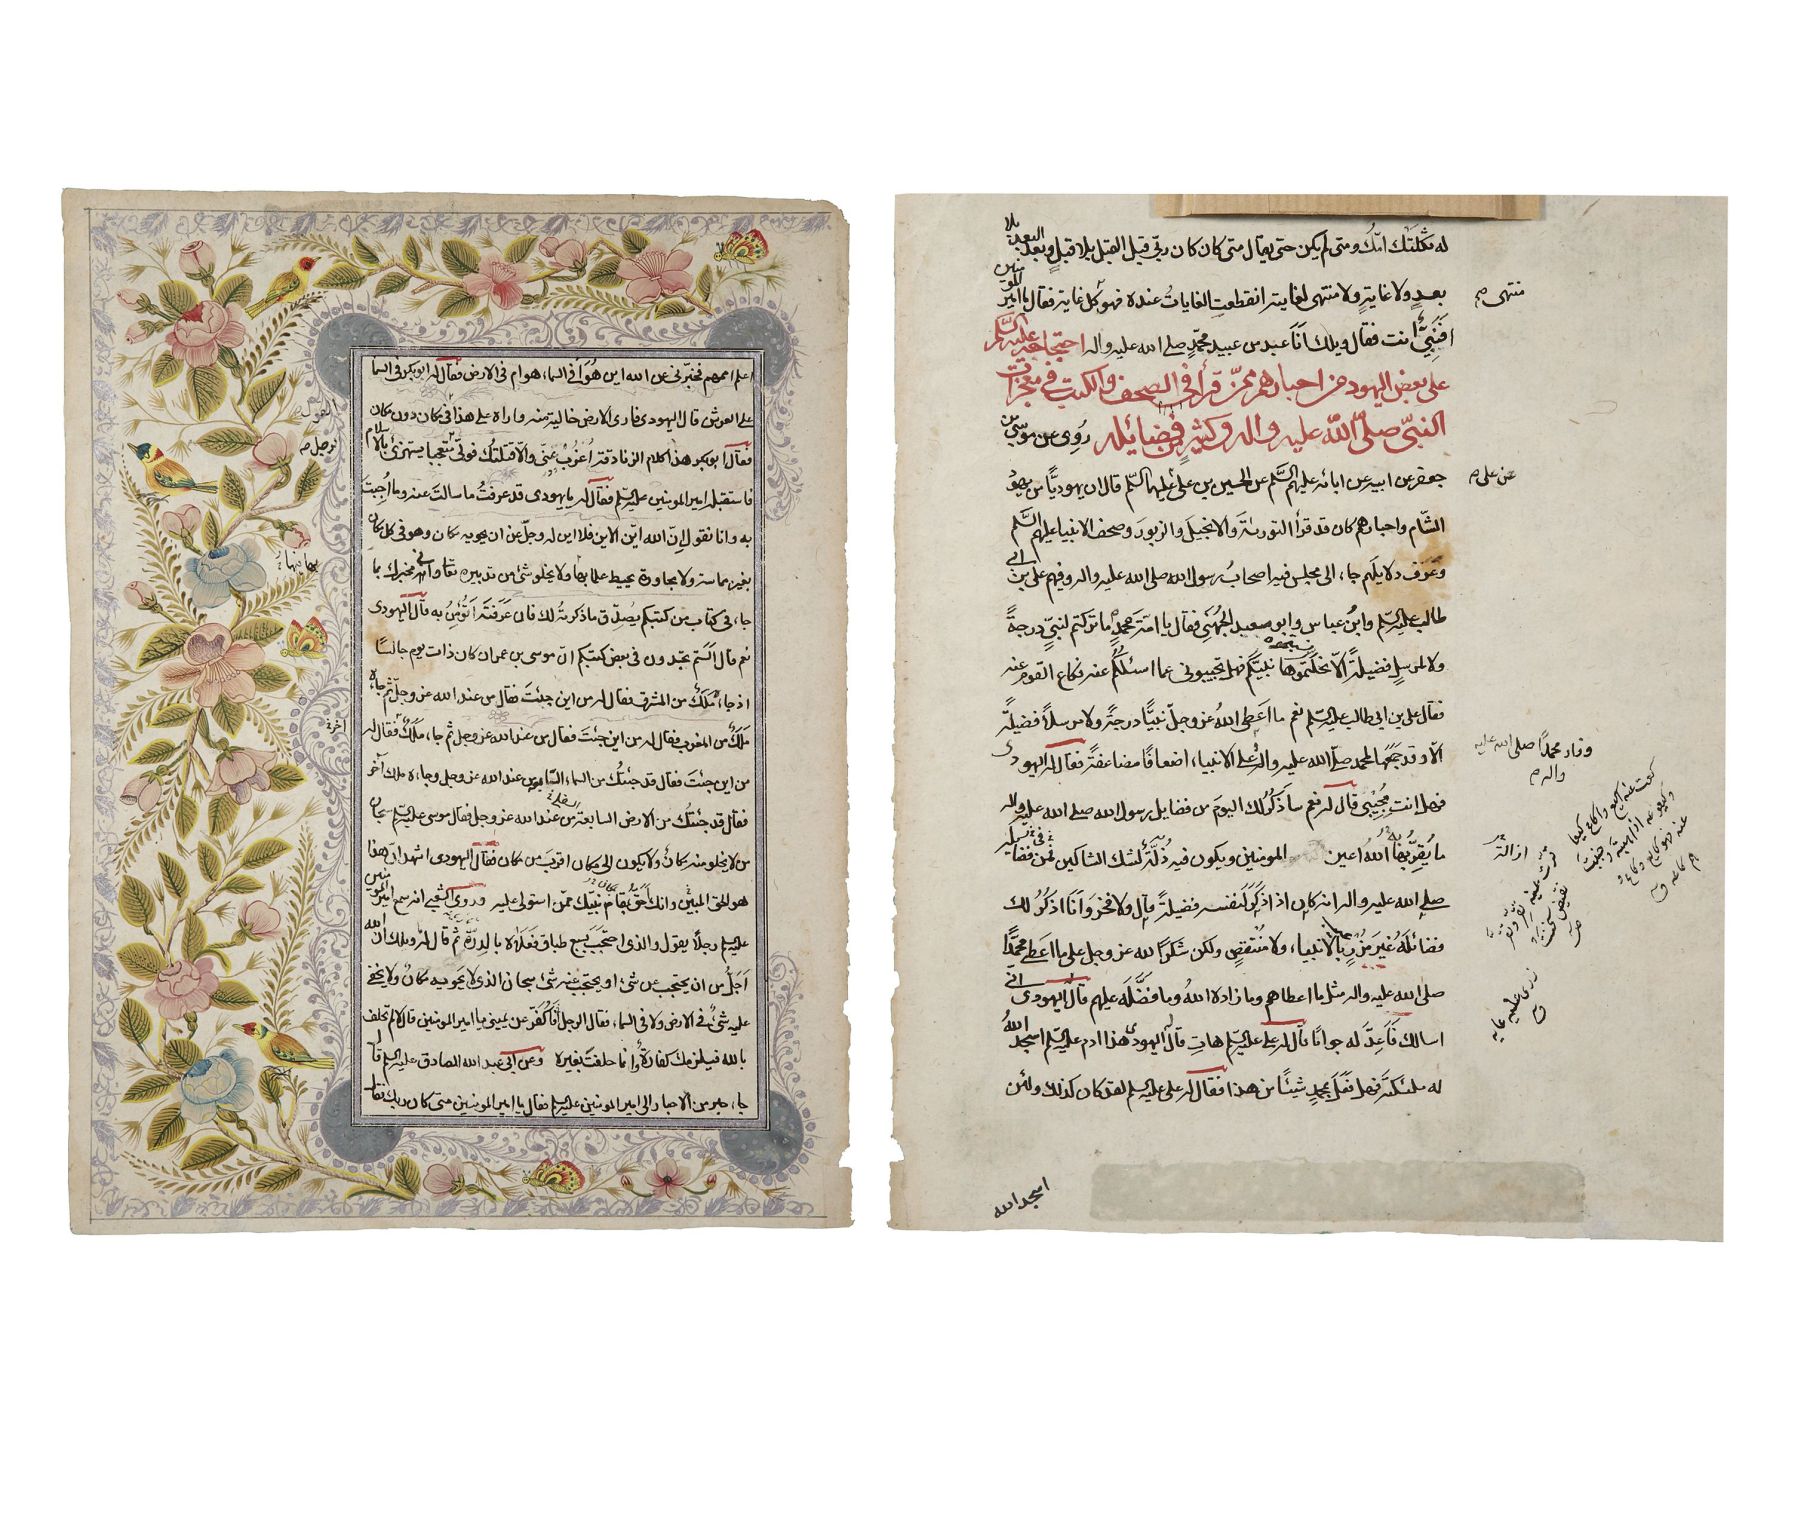 اعلم امهم فخبرنى عن الله اين هو أفى السماء هو ام فى الارض فقال له ابوبكر فى السماء
على العرش قال اليهودى فارى الارض خالية منه واراه على هذا فى مكان دون مكان
فقال ابوبكر هذا كلام الزنادقة اُعْزُب عنّى والّا قتلتك فولّى متعجبا يستهزئ بالاسلام
فاستقبله امير المومنين عليه السلم فقال له يا يهودى قد عرفتُ ما سالتَ عنه وما اُجِبتَ
به وانا نقول اِنّ الله اَيّن الاين فلا اين له وجلّ عن ان يحويه مكان وهو فى كل مكان
بغير مماسة ولا مجاورة يحيط علما بها ولا يخلو شئ من تدبيره تعا وانى مخبرك بما
جاء فى كتاب من كتبكم يُصدِّق ماذكرتُه لك فان عَرَفتَه أتُؤْمِنُ به قال اليهودى
نعم قال اَلَستم تجدون فى بعض كتبكم انّ موسى بن عمران كان ذات يوم جالسًا
اذ جاءه مَلَكٌ من المشرق فقال له من اين جئتَ فقال من عند الله عز وجلّ ثم جاءه
مَلَكٌ من المغرب فقال له من اين جئتَ فقال من عند الله عز وجل ثم جاءه مَلَكٌ فقال له
من اين جئتَ فقال قد جئتك من السماء السابعة من عند الله عز وجل وجاءه ملك آخر
السفلى
فقال قد جئتُك من الارض السابعة من عند الله عز وجل فقال موسى عليه السلم سبحان
من لا يخلو منه مكانٌ ولا يكون الى مكان اقربَ من مكان فقال اليهودى اشهد انّ هذا
هو الحق المبين وانك اَحَقُّ بمقام نبيّك ممّن استولى عليه وروى الشعبى انه سمع امير المومنين
عليه السلم رجلًا يقول والذى احتجب بسبع طباق فعَلَاه بالدِرّة ثم قال له ويلك انّ الله
اَجَلُّ من ان يحتجب عن شئ او يحتجب عنه شئ سبحان الذى لا يحويه مكان ولا يخفى
عليه شئ فى الارض ولا فى السماء فقال الرجل أفأكفّر عن يمينى يا امير المومنين قال لا لم تحلف
بالله فيلزمك كفارةٌ وانما حلفتَ بغيره وعن ابى عبد الله الصادق عليه السلم قال
جاء حبر من الاحبار الى امير المومنين عليه السلم فقال يا امير المومنين متى كان ربك فقال
له ثكلتك امّك ومتى لم يكن حتى يقال متى كان كان ربى قبل القبل بلا قبلٍ وبعد البعد بلا
بعدٍ ولا غايةٍ ولا منتهى لغايته انقطعت الغاياتُ عنده فهو كل غاية فقال يا امير المومنين
منتهى صح
افَنَبِىٌّ انت فقال ويلك اَنَا عبد من عبيد محمّدٍ صلى الله عليه واله احتجاجه عليه السلم
على بعض اليهود من احبارهم ممّن قرأ فى الصحف والكتب فى معجزات
النبىّ صلّى الله عليه واله وكثيرٍ من فضائله رُوِى عن موسى بن
جعفر عن ابيه عن ابائه عليهم السلم عن الحسين بن على عليهما السلم قال ان يهوديًّا من يهود
الشام واحبارهم كان قد قرأ التورية والانجيل والزبور وصحف الانبيا عليهم السلم
وعَرَف دلايلهم جاء الى مجلس فيه اصحابُ رسول الله صلى الله عليه واله وفيهم على بن ابى
طالب عليه السلم وابنُ عباس وابو سعيد الجُهَنِى فقال يا امّة محمّدٍ ما تركتم لنبىّ درجةً
ولا لمرسلٍ فضيلةً الّا نحلتموها نبيّكم فهل تجيبونى عما اسئلكم عنه فكاع القوم عنه
فقال على بن ابى طالب عليه السلم نعم ما اَعطى اللهُ عز وجلّ نبيًّا درجةً ولا مرسلًا فضيلةً
الّا وقد جَمَعَها لمحمد صلى الله عليه واله وزاد محمدا على الانبياء اضعافًا مضاعفةً فقال له اليهودى
وزاد محمدًا صلى الله عليه
واله صح
فهل انت مُجيبى قال له نعم سأذكُرُ لك اليوم من فضايل رسول الله صلى الله عليه واله
ما يُقِرُّ به اللهُ اعين المومنين ويكون فيه ازالةٌ لشك الشاكين فى فضايله
صلى الله عليه واله انه كان اذا ذكر لنفسه فضيلةً قال ولا فخر وَاَنَا اذكُرُ لك
فضائلَه غيرَ مُزْرٍ بالانبياء ولا مُنتَقِصٍ ولكن شكرًا لله عز وجل على ما اعطى محمّدًا
صلى الله عليه واله مثل ما اعطاهم وما زاده اللهُ وما فضّلَه عليهم قال اليهودى انّى
اسالك فَاَعِدَّ له جوابًا قال له على عليه السلم هاتِ قال اليهودى هذا ادم عليه السلم اسجد اللهُ
له ملئكته فهل فُعِلَ بمحمدٍ شيئًا من هذا فقال له على عليه السلم لقد كان كذلك ولئن
اسجد الله